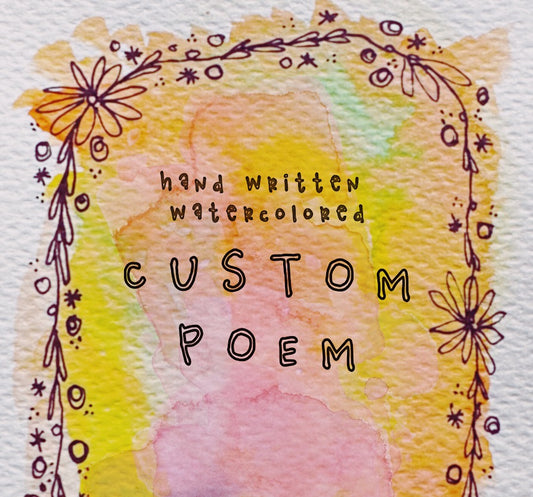 hand written
watercolored
CUSTOM
POEM